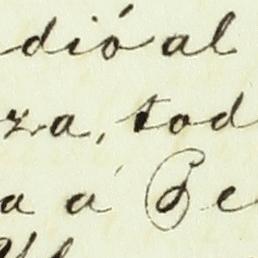 dió al
za, tod
a á Be